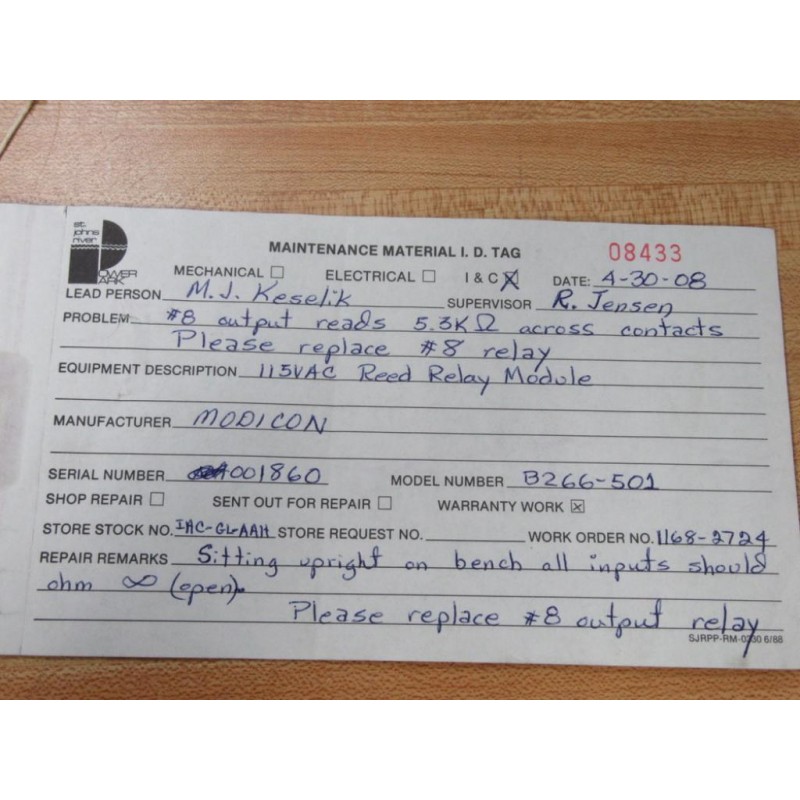 st.
johns
river
POWER
PARK
MAINTENANCE MATERIAL I. D. TAG 08433
MECHANICAL ☐ ELECTRICAL ☐ I & C ☒ DATE: 4-30-08
LEAD PERSON M.J. Keselik SUPERVISOR R. Jensen
PROBLEM #8 output reads 5.3K Ω across contacts
Please replace #8 relay
EQUIPMENT DESCRIPTION 115VAC Reed Relay Module
MANUFACTURER MODICON
SERIAL NUMBER A001860 MODEL NUMBER B266-501
SHOP REPAIR ☐ SENT OUT FOR REPAIR ☐ WARRANTY WORK ☒
STORE STOCK NO. STORE REQUEST NO. WORK ORDER NO. 1168-2724
REPAIR REMARKS Sitting upright on bench all inputs should
ohm ∞ (open).
Please replace #8 output relay
SJRPP-RM-0230 6/88